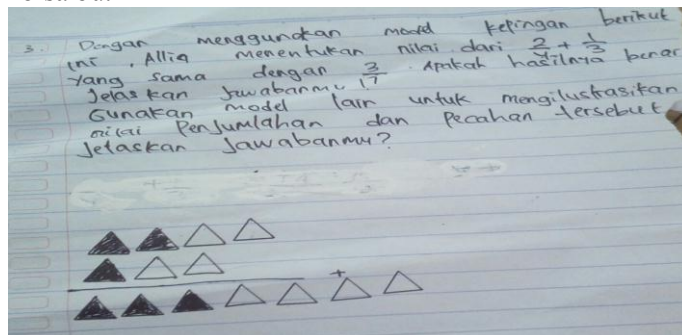 3. Dengan menggunakan model kepingan berikut
ini, Allia menentukan nilai dari 2/4 + 1/3
yang sama dengan 3/7. Apakah hasilnya benar
Jelaskan Jawabanmu!
Gunakan model lain untuk mengilustrasikan
nilai Penjumlahan dan Pecahan tersebut
Jelaskan Jawabanmu?
+